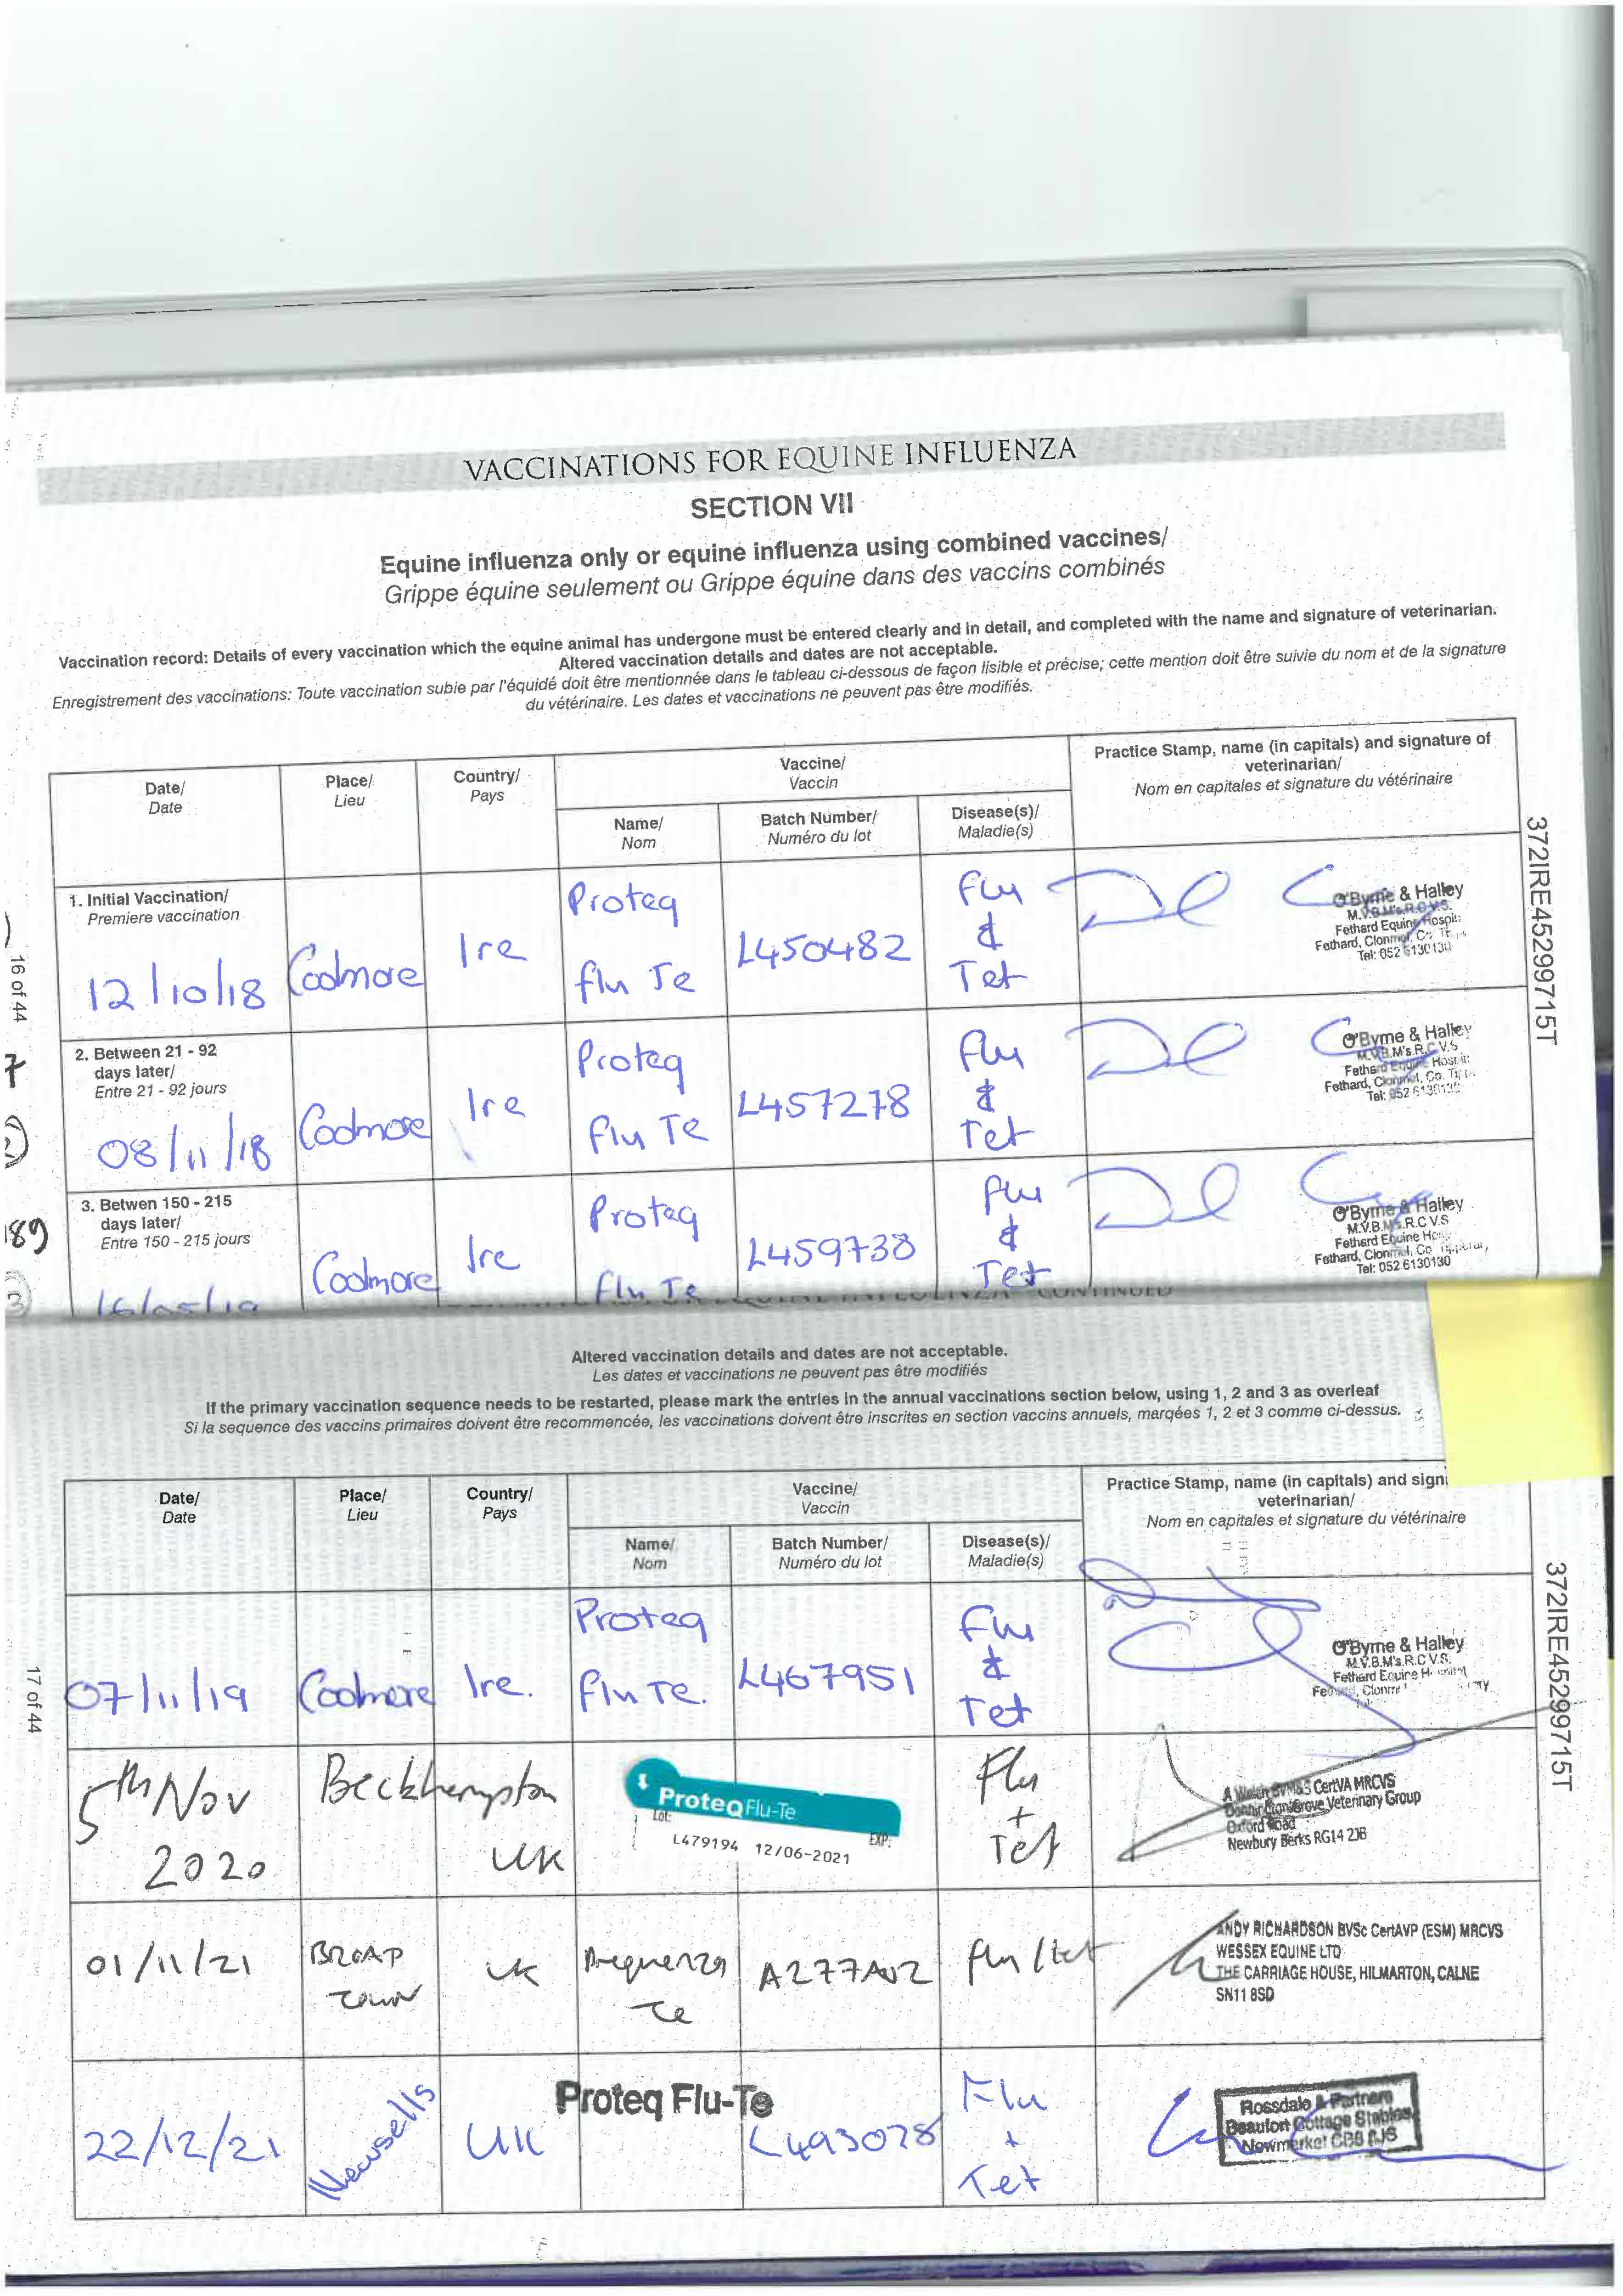 VACCINATIONS FOR EQUINE INFLUENZA
SECTION VII
Equine influenza only or equine influenza using combined vaccines/
Grippe équine seulement ou Grippe équine dans des vaccins combinés
Vaccination record: Details of every vaccination which the equine animal has undergone must be entered clearly and in detail, and completed with the name and signature of veterinarian.
Altered vaccination details and dates are not acceptable.
Enregistrement des vaccinations: Toute vaccination subie par l'équidé doit être mentionnée dans le tableau ci-dessous de façon lisible et précise; cette mention doit être suivie du nom et de la signature
du vétérinaire. Les dates et vaccinations ne peuvent pas être modifiés.
Date/
Date
Place/
Lieu
Country/
Pays
Vaccine/
Vaccin
Name/
Nom
Batch Number/
Numéro du lot
Disease(s)/
Maladie(s)
Practice Stamp, name (in capitals) and signature of
veterinarian/
Nom en capitales et signature du vétérinaire
1. Initial Vaccination/
Premiere vaccination
12/10/18
Coolmore
Ire
Proteq
flu Te
L450482
Flu
&
Tet
O'Byrne & Halley
M.V.B.M's.R.C.V.S.
Fethard Equine Hospit
Fethard, Clonmel, Co. Tip
Tel: 052 6130130
2. Between 21 - 92
days later/
Entre 21 - 92 jours
08/11/18
Coolmore
Ire
Proteq
flu Te
L457278
Flu
&
Tet
O'Byrne & Halley
M.V.B.M's.R.C.V.S
Fethard Equine Hospit
Fethard, Clonmel, Co. Tip
Tel: 052 6130130
3. Betwen 150 - 215
days later/
Entre 150 - 215 jours
Coolmore
Ire
Proteq
flu Te
L459738
flu
&
Tet
O'Byrne & Halley
M.V.B.M's.R.C.V.S
Fethard Equine Ho
Fethard, Clonmel, Co Tipperary,
Tel: 052 6130130
372IRE45299715T
16 of 44
7
2
189
3
CONTINUED
Altered vaccination details and dates are not acceptable.
Les dates et vaccinations ne peuvent pas être modifiés
If the primary vaccination sequence needs to be restarted, please mark the entries in the annual vaccinations section below, using 1, 2 and 3 as overleaf
Si la sequence des vaccins primaires doivent être recommencée, les vaccinations doivent être inscrites en section vaccins annuels, marqées 1, 2 et 3 comme ci-dessus.
Date/
Date
Place/
Lieu
Country/
Pays
Vaccine/
Vaccin
Name/
Nom
Batch Number/
Numéro du lot
Disease(s)/
Maladie(s)
Practice Stamp, name (in capitals) and sign
veterinarian/
Nom en capitales et signature du vétérinaire
07/11/19
Coolmore
Ire.
Proteq
flu Te.
L467951
Flu
&
Tet
O'Byrne & Halley
M.V.B.M's.R.C.V.S.
Fethard Equine Hospital
5th Nov
2020
Beckhampton
UK
ProteqFlu-Te
Lot:
EXP:
L479194 12/06-2021
Flu
+
Tet
A Welch BVM&S CertVA MRCVS
Donnington Grove Veterinary Group
Oxford Road
Newbury Berks RG14 2JB
01/11/21
BROAD
TOWN
UK
Prequenza
Te
A277A02
flu/tet
ANDY RICHARDSON BVSc CertAVP (ESM) MRCVS
WESSEX EQUINE LTD
THE CARRIAGE HOUSE, HILMARTON, CALNE
SN11 8SD
22/12/21
Newsells
UK
Proteq Flu-Te
L493078
Flu
+
Tet
Rossdale & Partners
Beaufort Cottage Stables
Newmarket CB8 8JS
372IRE45299715T
17 of 44